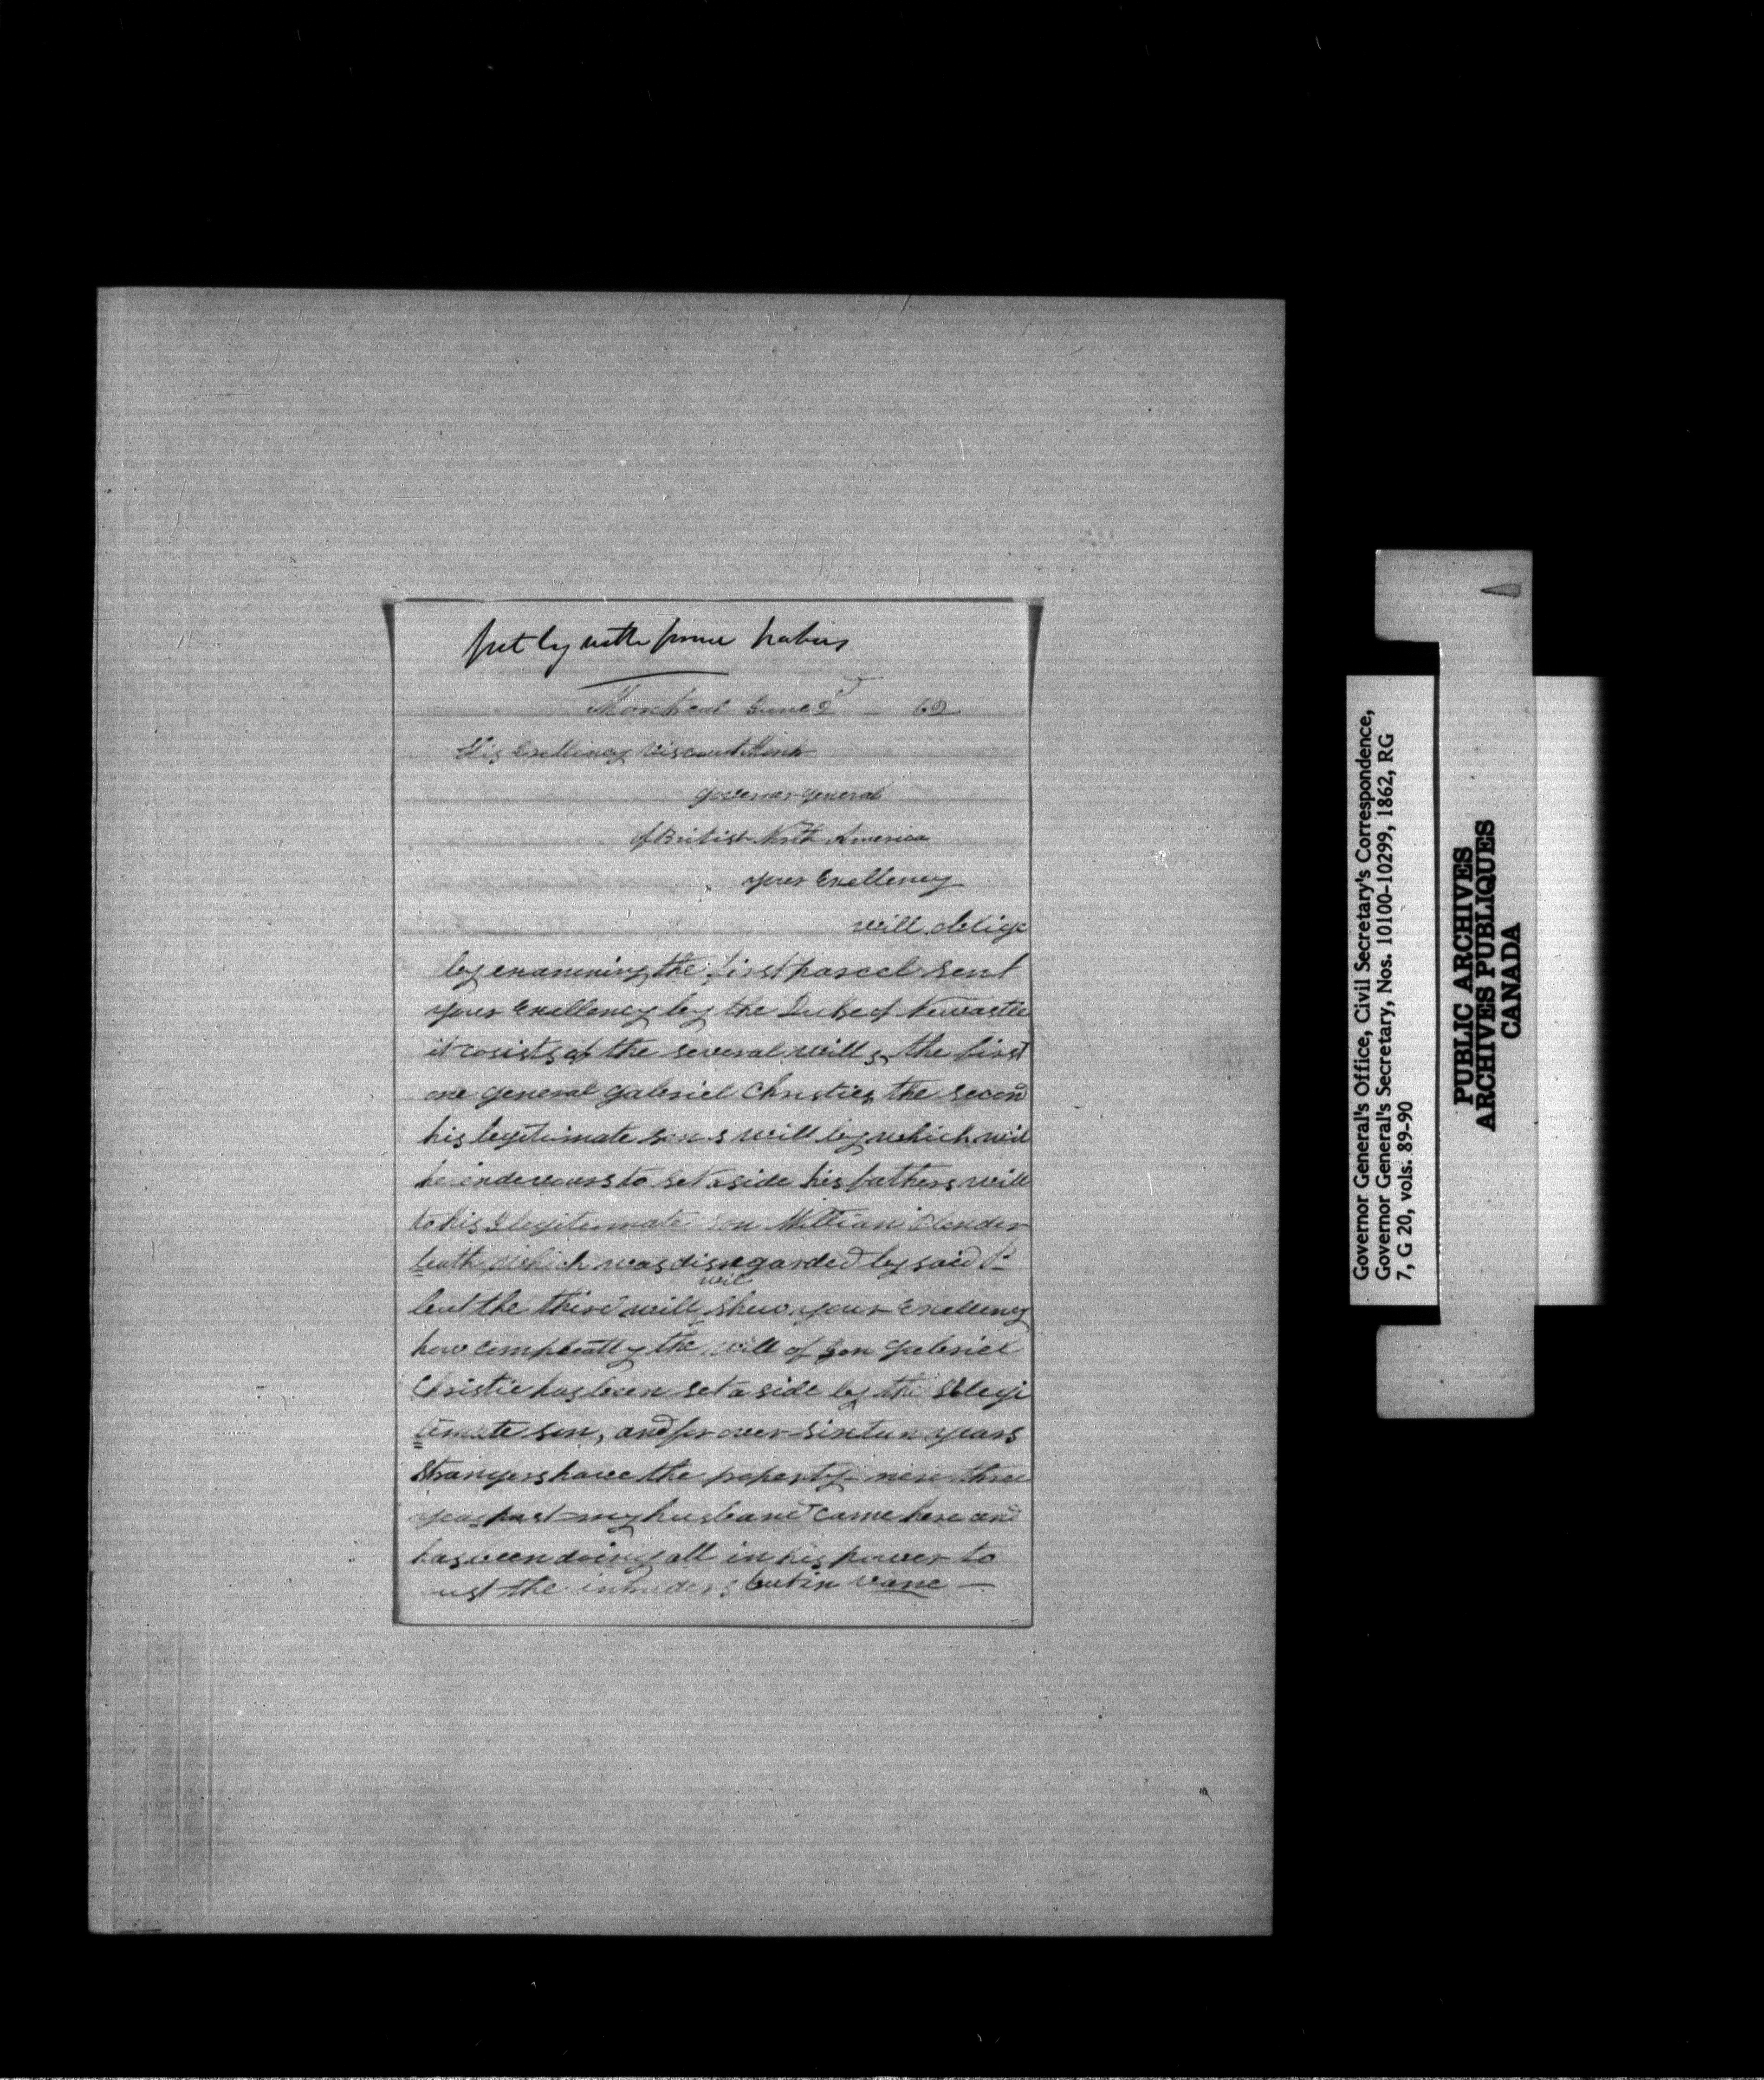 put by with former papers
Montreal June 2d - 62
His Exellincy Viscount Monk
governor general
of British North America
your Exellency
will oblige
by examining the first parcel sent
your Exellency by the Duke of Newcastle
it cosists of the several wills, the first
one general gabriel Christies, the second
his legitimate sons will by which will
he endevours to set aside his fathers will
to his Ilegitemate son William Clender
leath, which was disregarded by said
but the third will wil shew your Exellency
how compleatly the will of Gen gabriel
Christie has been set a side by the Illegi
temate son, and for over sixteen years
Strangers have the property - near three
years past my husband came here and
has been doing all in his power to
oust the intruders but in vane —
Governor General's Office, Civil Secretary's Correspondence,
Governor General's Secretary, Nos. 10100-10299, 1862, RG
7, G 20, vols. 89-90
PUBLIC ARCHIVES
ARCHIVES PUBLIQUES
CANADA